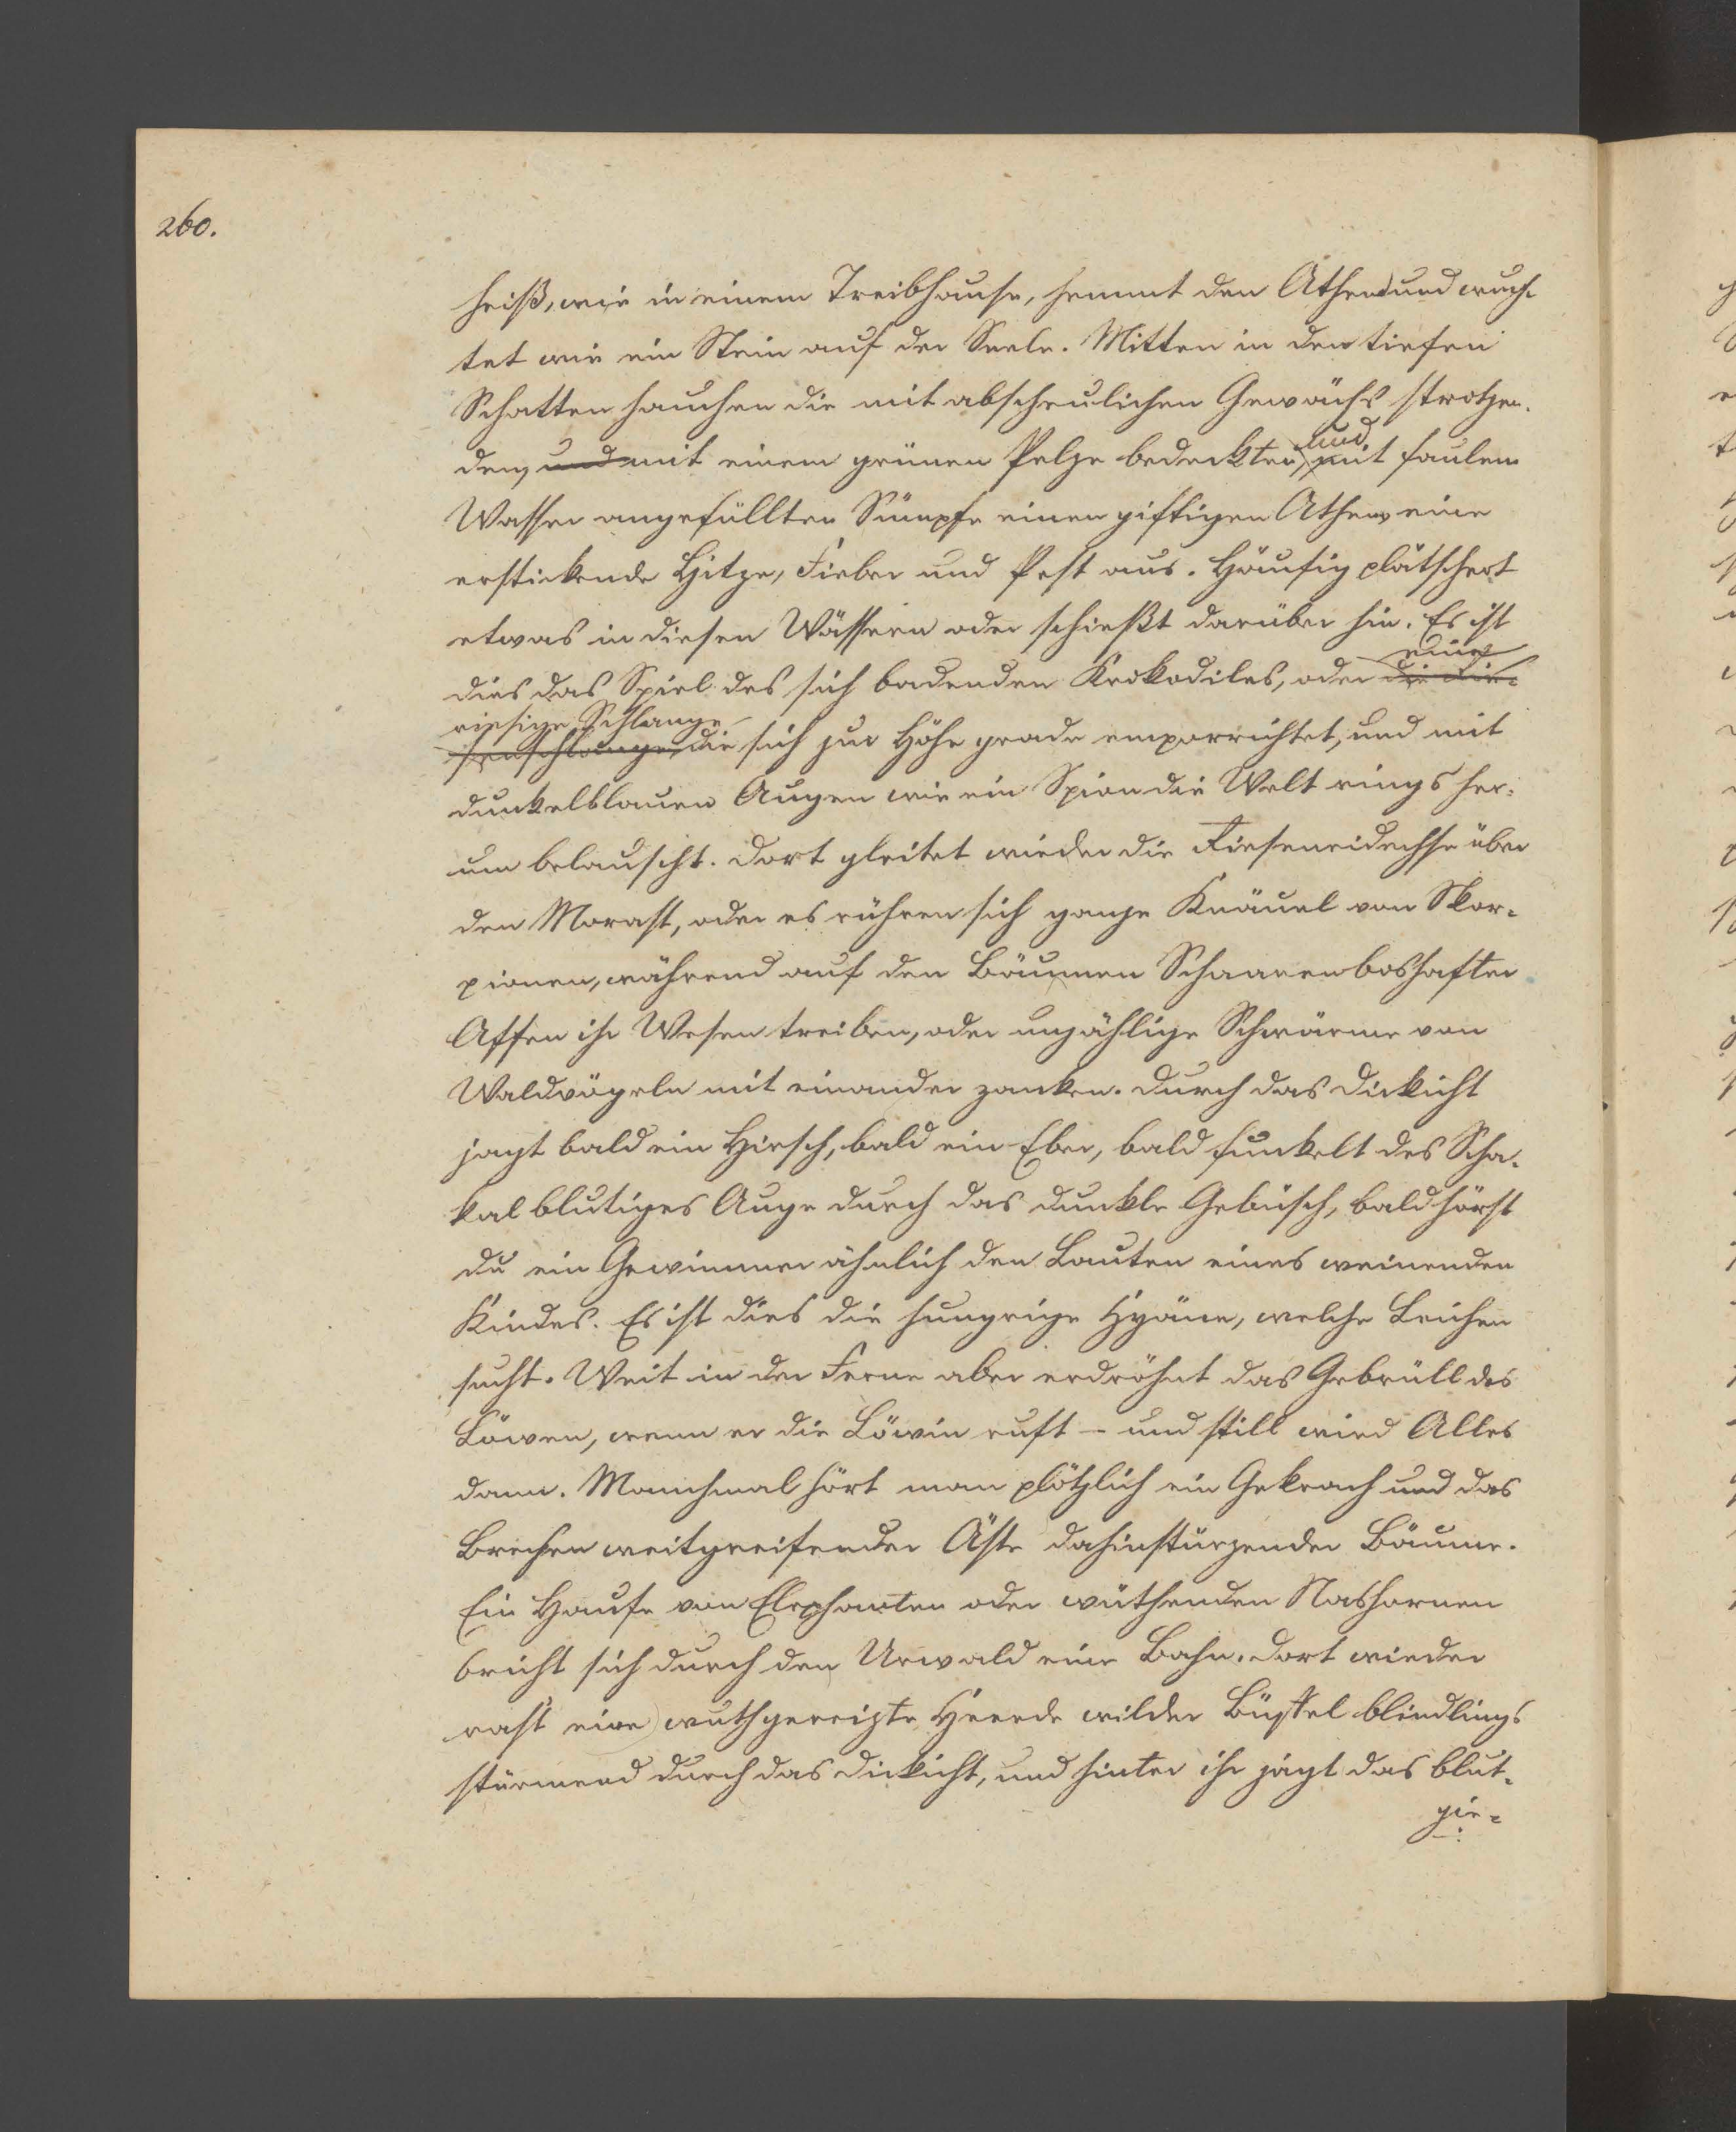 260.
heiß, wie in einem Treibhause, hemmt den Athem und wuch-
tet wie ein Stein auf der Seele. Mitten in den tiefen
Schatten hauchen die mit abscheulichen Gewächs strotzen-
den, und mit einem grünen Pelze bedeckten, und mit faulem
Wasser angefüllten Sümpfe einen giftigen Athem eine
erstickende Hitze, Fieber und Pest aus. Häufig plätschert
etwas in diesen Wässern oder schießt darüber hin. Es ist
dies das Spiel des sich badenden Krokodiles, oder die Rie- eine
senschlange, riesige Schlange die sich zur Höhe grade emporrichtet, und mit
dunkelblauen Augen wie ein Spion die Welt rings her-
um belauscht. Dort gleitet wieder die Rieseneidechse über
den Morast, oder es rühren sich ganze Knäuel von Skor-
pionen, während auf den Bäumen Schaaren boshafter
Affen ihr Wesen treiben, oder unzählige Schwärme von
Waldvögeln mit einander zanken. Durch das Dickicht
jagt bald ein Hirsch, bald ein Eber, bald funkelt des Scha-
kal blutiges Auge durch das dunkle Gebüsch, bald hörst
du ein Gewimmer ähnlich den Lauten eines weinenden
Kindes. Es ist dies die hungrige Hyäne, welche Leichen
sucht. Weit in der Ferne aber erdröhnt das Gebrüll des
Löwen, wenn er die Löwin ruft – und still wird Alles
dann. Manchmal hört man plötzlich ein Gekrach und das
Brechen weitgreifender Äste dahinstürzender Bäume.
Ein Haufe von Elephanten oder wüthenden Nashornen
bricht sich durch den Urwald eine Bahn. Dort wieder
rast eine wuthgereizte Heerde wilder Büffel blindlings
stürmend durch das Dickicht, und hinter ihr jagt das blut-
gie-